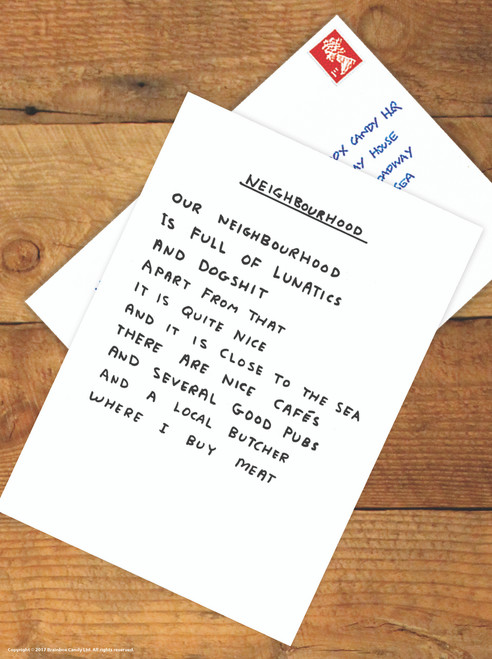 NEIGHBOURHOOD
OUR NEIGHBOURHOOD
IS FULL OF LUNATICS
AND DOGSHIT
APART FROM THAT
IT IS QUITE NICE
AND IT IS CLOSE TO THE SEA
THERE ARE NICE CAFÉS
AND SEVERAL GOOD PUBS
AND A LOCAL BUTCHER
WHERE I BUY MEAT
1ST
OX CANDY HQ
AY HOUSE
OADWAY
SEA
Copyright © 2017 Brainbox Candy Ltd. All rights reserved.